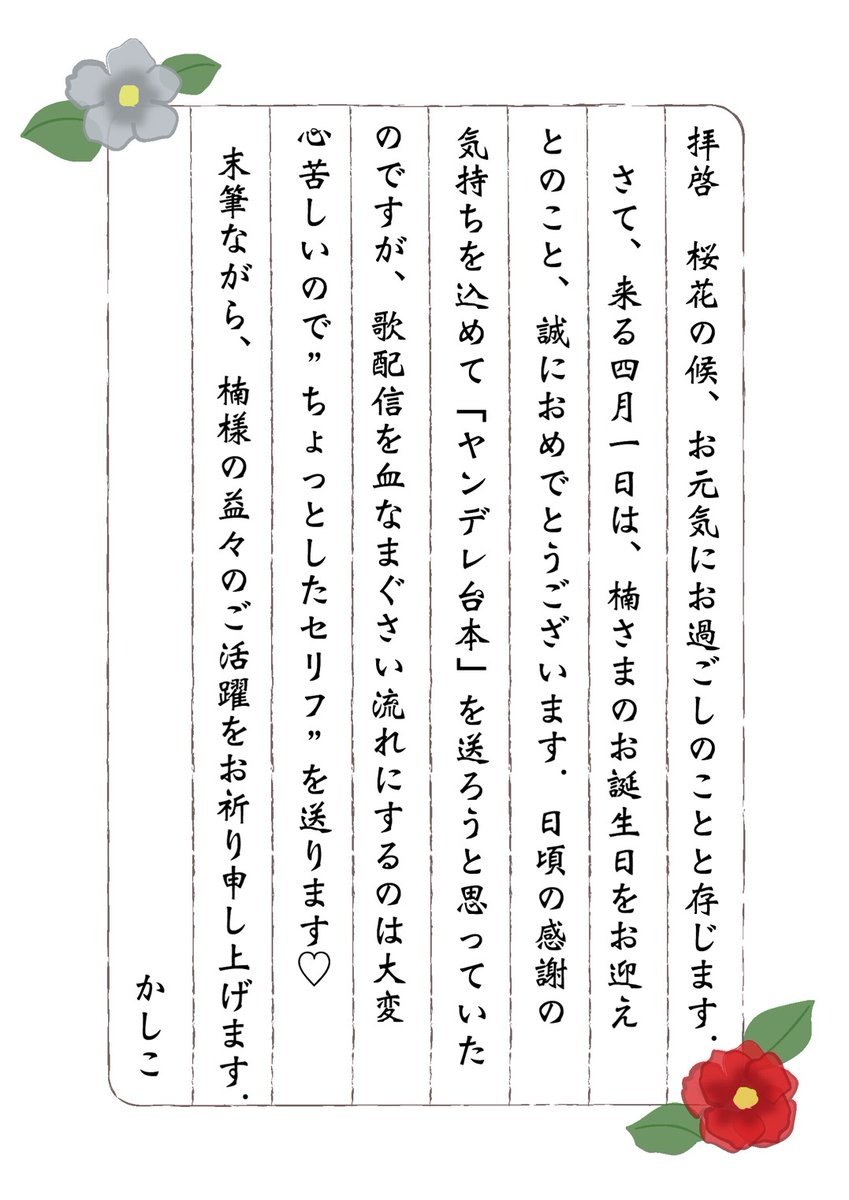 拝啓　桜花の候、お元気にお過ごしのことと存じます.
さて、来る四月一日は、楠さまのお誕生日をお迎え
とのこと、誠におめでとうございます. 日頃の感謝の
気持ちを込めて「ヤンデレ台本」を送ろうと思っていた
のですが、歌配信を血なまぐさい流れにするのは大変
心苦しいので”ちょっとしたセリフ”を送ります♡
末筆ながら、楠様の益々のご活躍をお祈り申し上げます.
かしこ